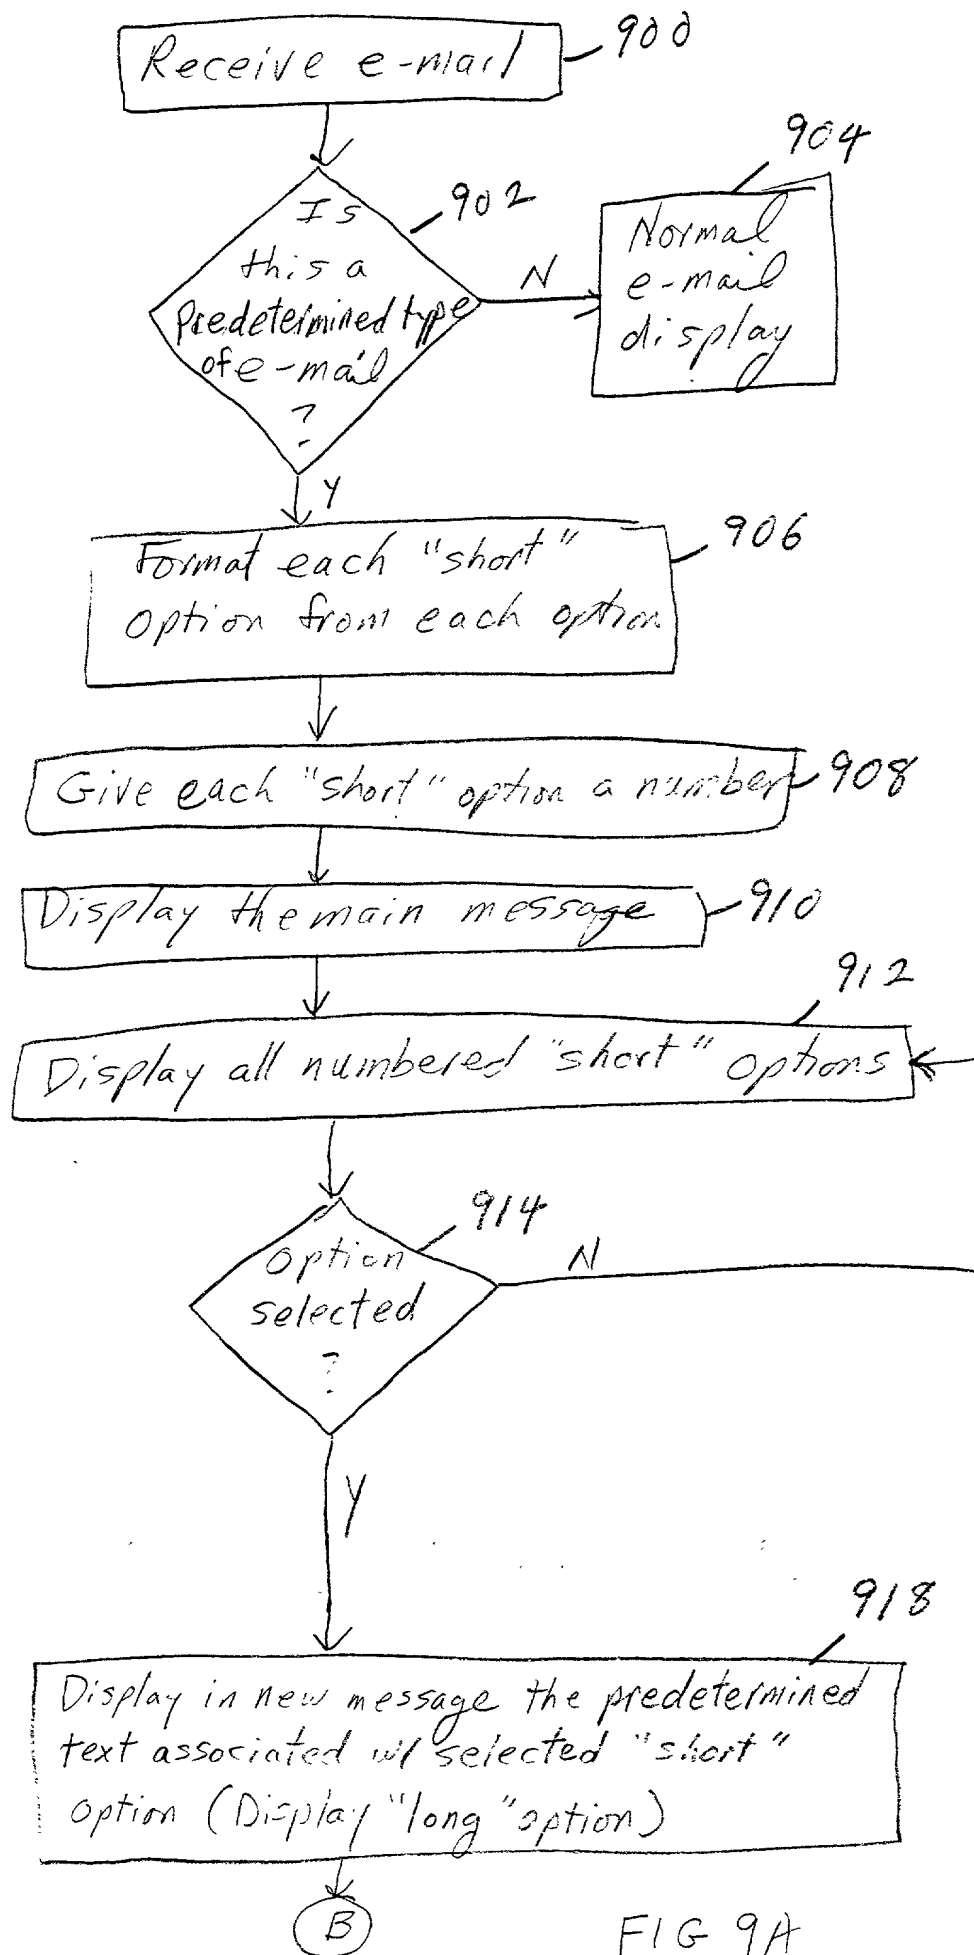 Receive e-mail
900
904
902
Is
this a
predetermined type
of e-mail
?
N
Normal
e-mail
display
Y
906
Format each "short"
option from each option
Give each "short" option a number
908
Display the main message
910
912
Display all numbered "short" options
914
Option
selected
?
N
Y
918
Display in new message the predetermined
text associated w/ selected "short"
option (Display "long" option)
B
FIG 9A